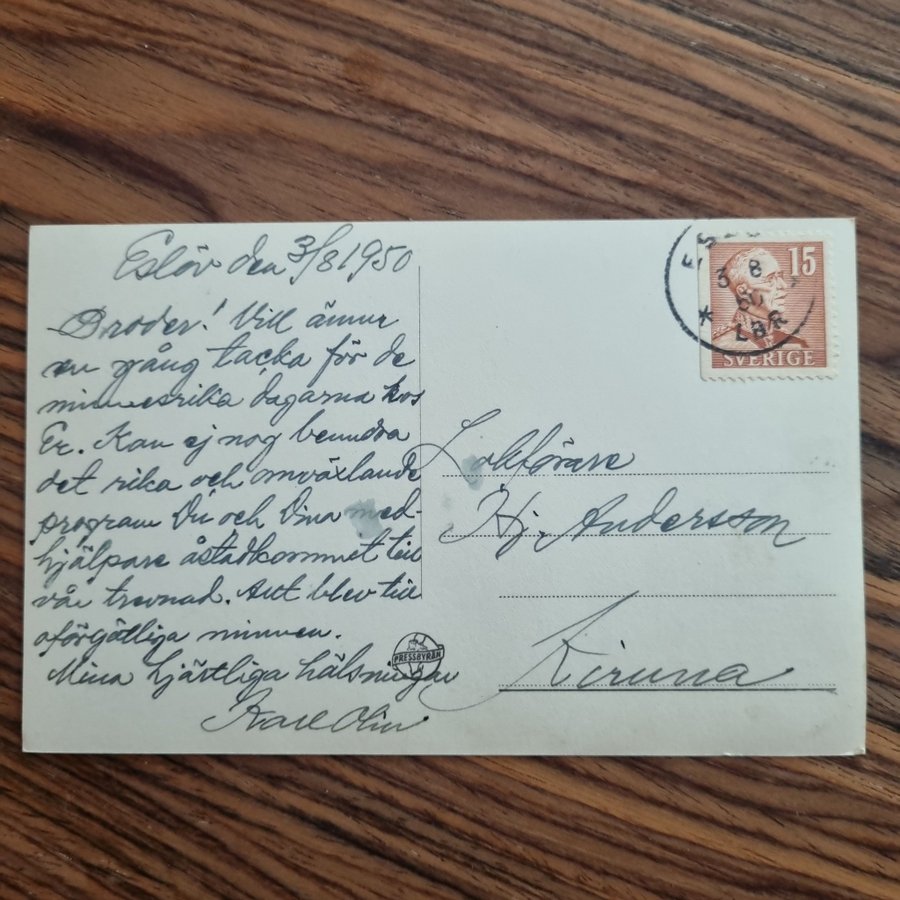 Eslöv den 3/8 1950
Broder! Vill ännu
en gång tacka för de
minnesrika dagarna hos
Er. Kan ej nog beundra
det rika och omväxlande
program Du och Dina med-
hjälpare åstadkommet till
vår trevnad. Allt blev till
oförgätliga minnen.
Mina hjärtliga hälsningar
Karl Olin
PRESSBYRÅN
3 8
50
LBR
15
SVERIGE
Lokförare
Hj. Andersson
Kiruna